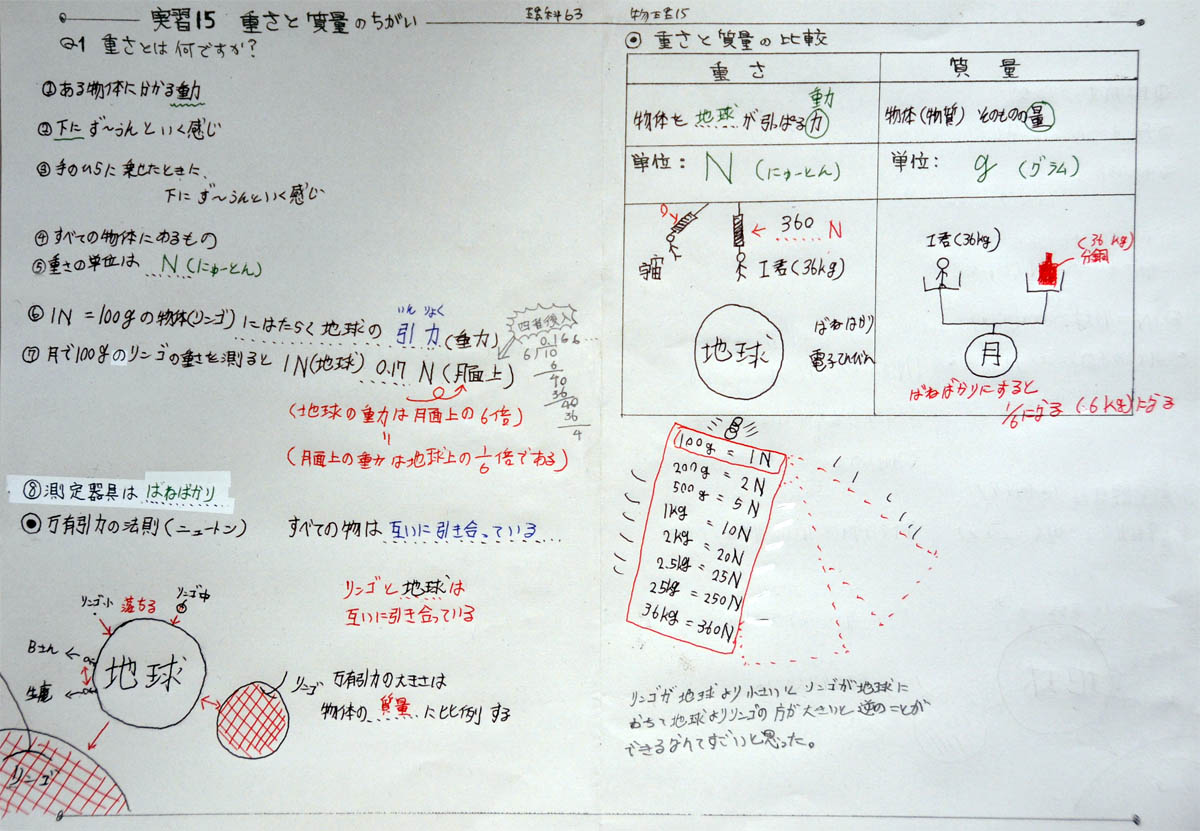 実習15 重さと質量のちがい
理科63 物理15
Q1 重さとは何ですか?
①ある物体に分かる動力
②下にず〜うんといく感じ
③手のひらに乗せたときに、
下にず〜うんといく感じ
④すべての物体にあるもの
⑤重さの単位は N(にゅーとん)
いんりょく
⑥1N=100gの物体(リンゴ)にはたらく地球の引力(重力)
⑦月で100gのリンゴの重さを測ると 1N(地球) 0.17 N(月面上)
四捨後入
0.166
6/10
6
40
36
40
36
4
(地球の重力は月面上の6倍)
〃
(月面上の重力は地球上の1/6倍である)
⑧測定器具は ばねばかり
◉万有引力の法則(ニュートン) すべての物は 互いに引き合っている
リンゴと地球は
互いに引き合っている
リンゴ小 落ちる リンゴ中
Bさん
生鹿
地球
リンゴ
リンゴ
万有引力の大きさは
物体の質量に比例する
◉ 重さと質量の比較
重さ 質量
動
物体を地球が引っぱる力
物体(物質)そのものの量
単位: N (にゅーとん)
単位: g (グラム)
0
360 N
宇宙 I君(36kg)
地球
ばねばかり
電子ひんびん
I君(36kg)
(36kg)
分銅
月
ばねばかりにすると
1/6になる (6kg)になる
100g = 1N
200g = 2N
500g = 5N
1kg = 10N
2kg = 20N
2.5kg = 25N
25kg = 250N
36kg = 360N
リンゴが地球より小さいとリンゴが地球に
おちて地球よりリンゴの方が大きいと逆のことが
できるなんてすごいと思った。